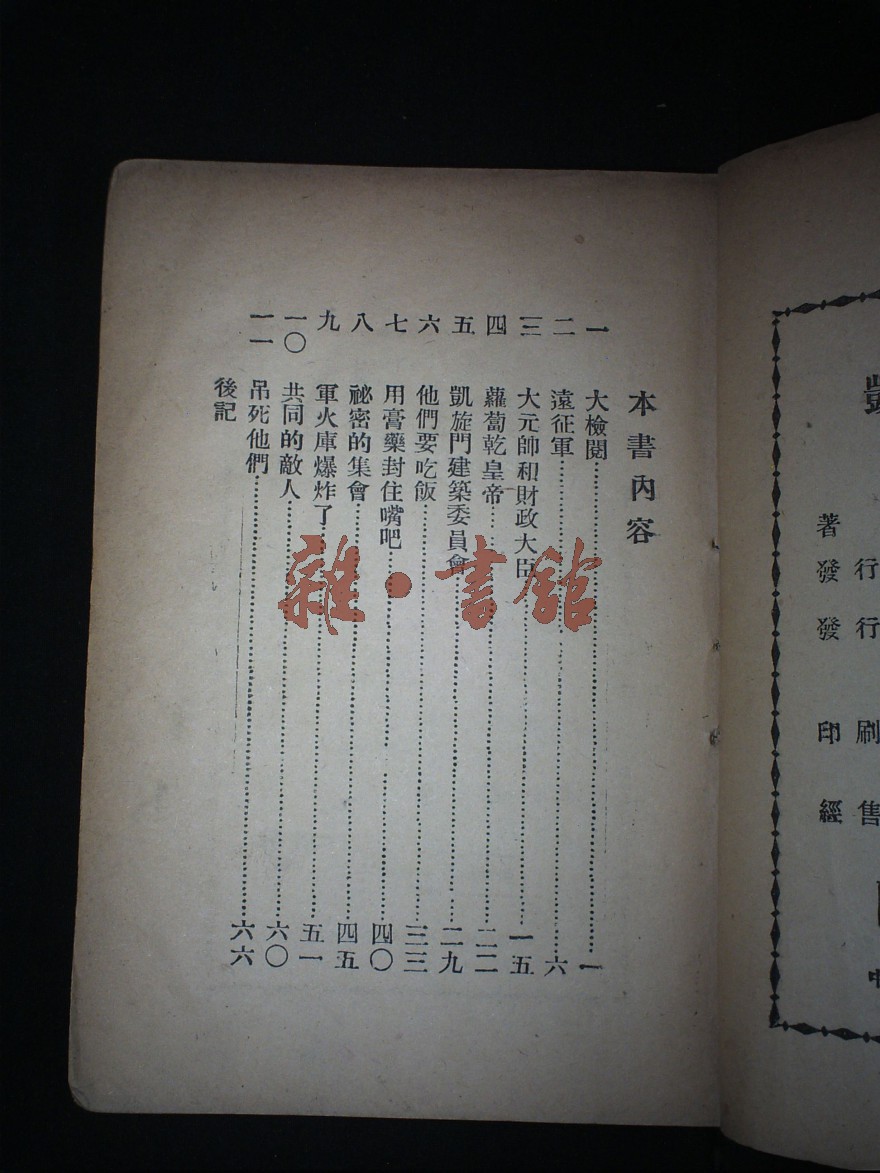 本書內容
一 大檢閱 一
二 遠征軍 六
三 大元帥和財政大臣 一五
四 蘿蔔乾皇帝 二二
五 凱旋門建築委員會 二九
六 他們要吃飯 三三
七 用膏藥封住嘴吧 四〇
八 祕密的集會 四五
九 軍火庫爆炸了 五一
一〇 共同的敵人 六〇
一一 吊死他們 六六
後記
雜·書館
著
發行
發行
印刷
經售